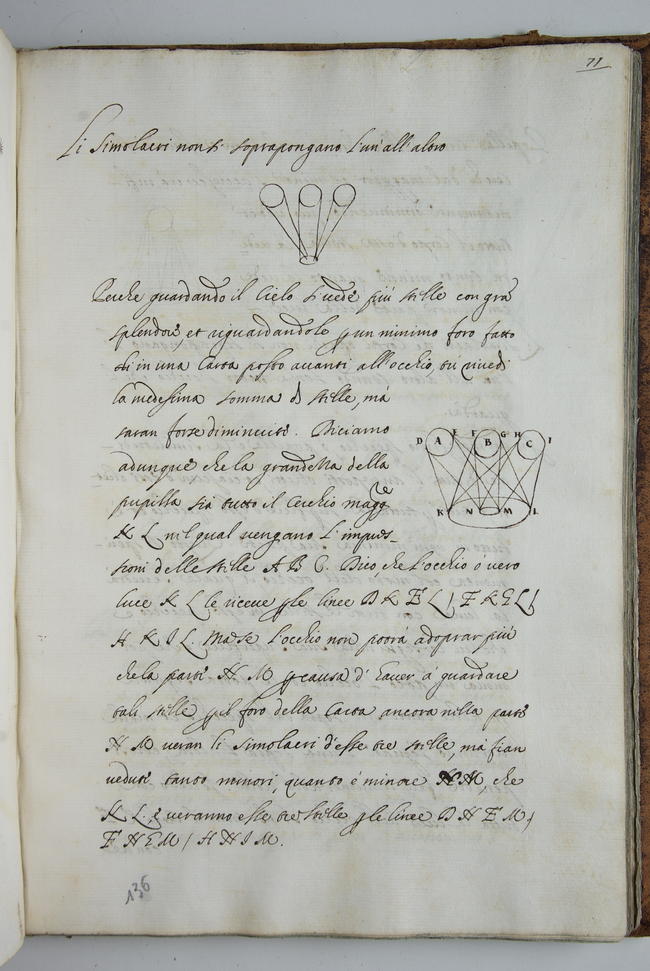 71
Li Simolacri non si soprapongano l'un' all' altro
Perche guardando il Cielo si vede più stelle con grã
splendore, et riguardandole ꝑ un minimo foro fatto
in una Carta posto avanti all' occhio, tu rivedi
la medesima somma di stelle, mà
saran forse diminuite. Diciamo
adunque che la grandezza della
pupilla sia tutto il Cerchio magg.re
K L nel qual vengano l' impres-
sioni delle stelle A B C. Dico, che l'occhio ò vero
luce K L le riceve ꝑ le linee D K E L / F K G L /
H K I L. Ma se l'occhio non potrà adoprar più
che la parte N M ꝑ causa d' haver à guardare
tali stelle ꝑ il foro della Carta ancora nella parte
N M veran li Simolacri d'esse tre stelle, mà sian
vedute tanto minori, quanto è minore N M, che
K L, e veranno esse tre stelle ꝑ le linee D N E M /
F N G M / H N I M.
D A E F B G H C I
K N M L
136